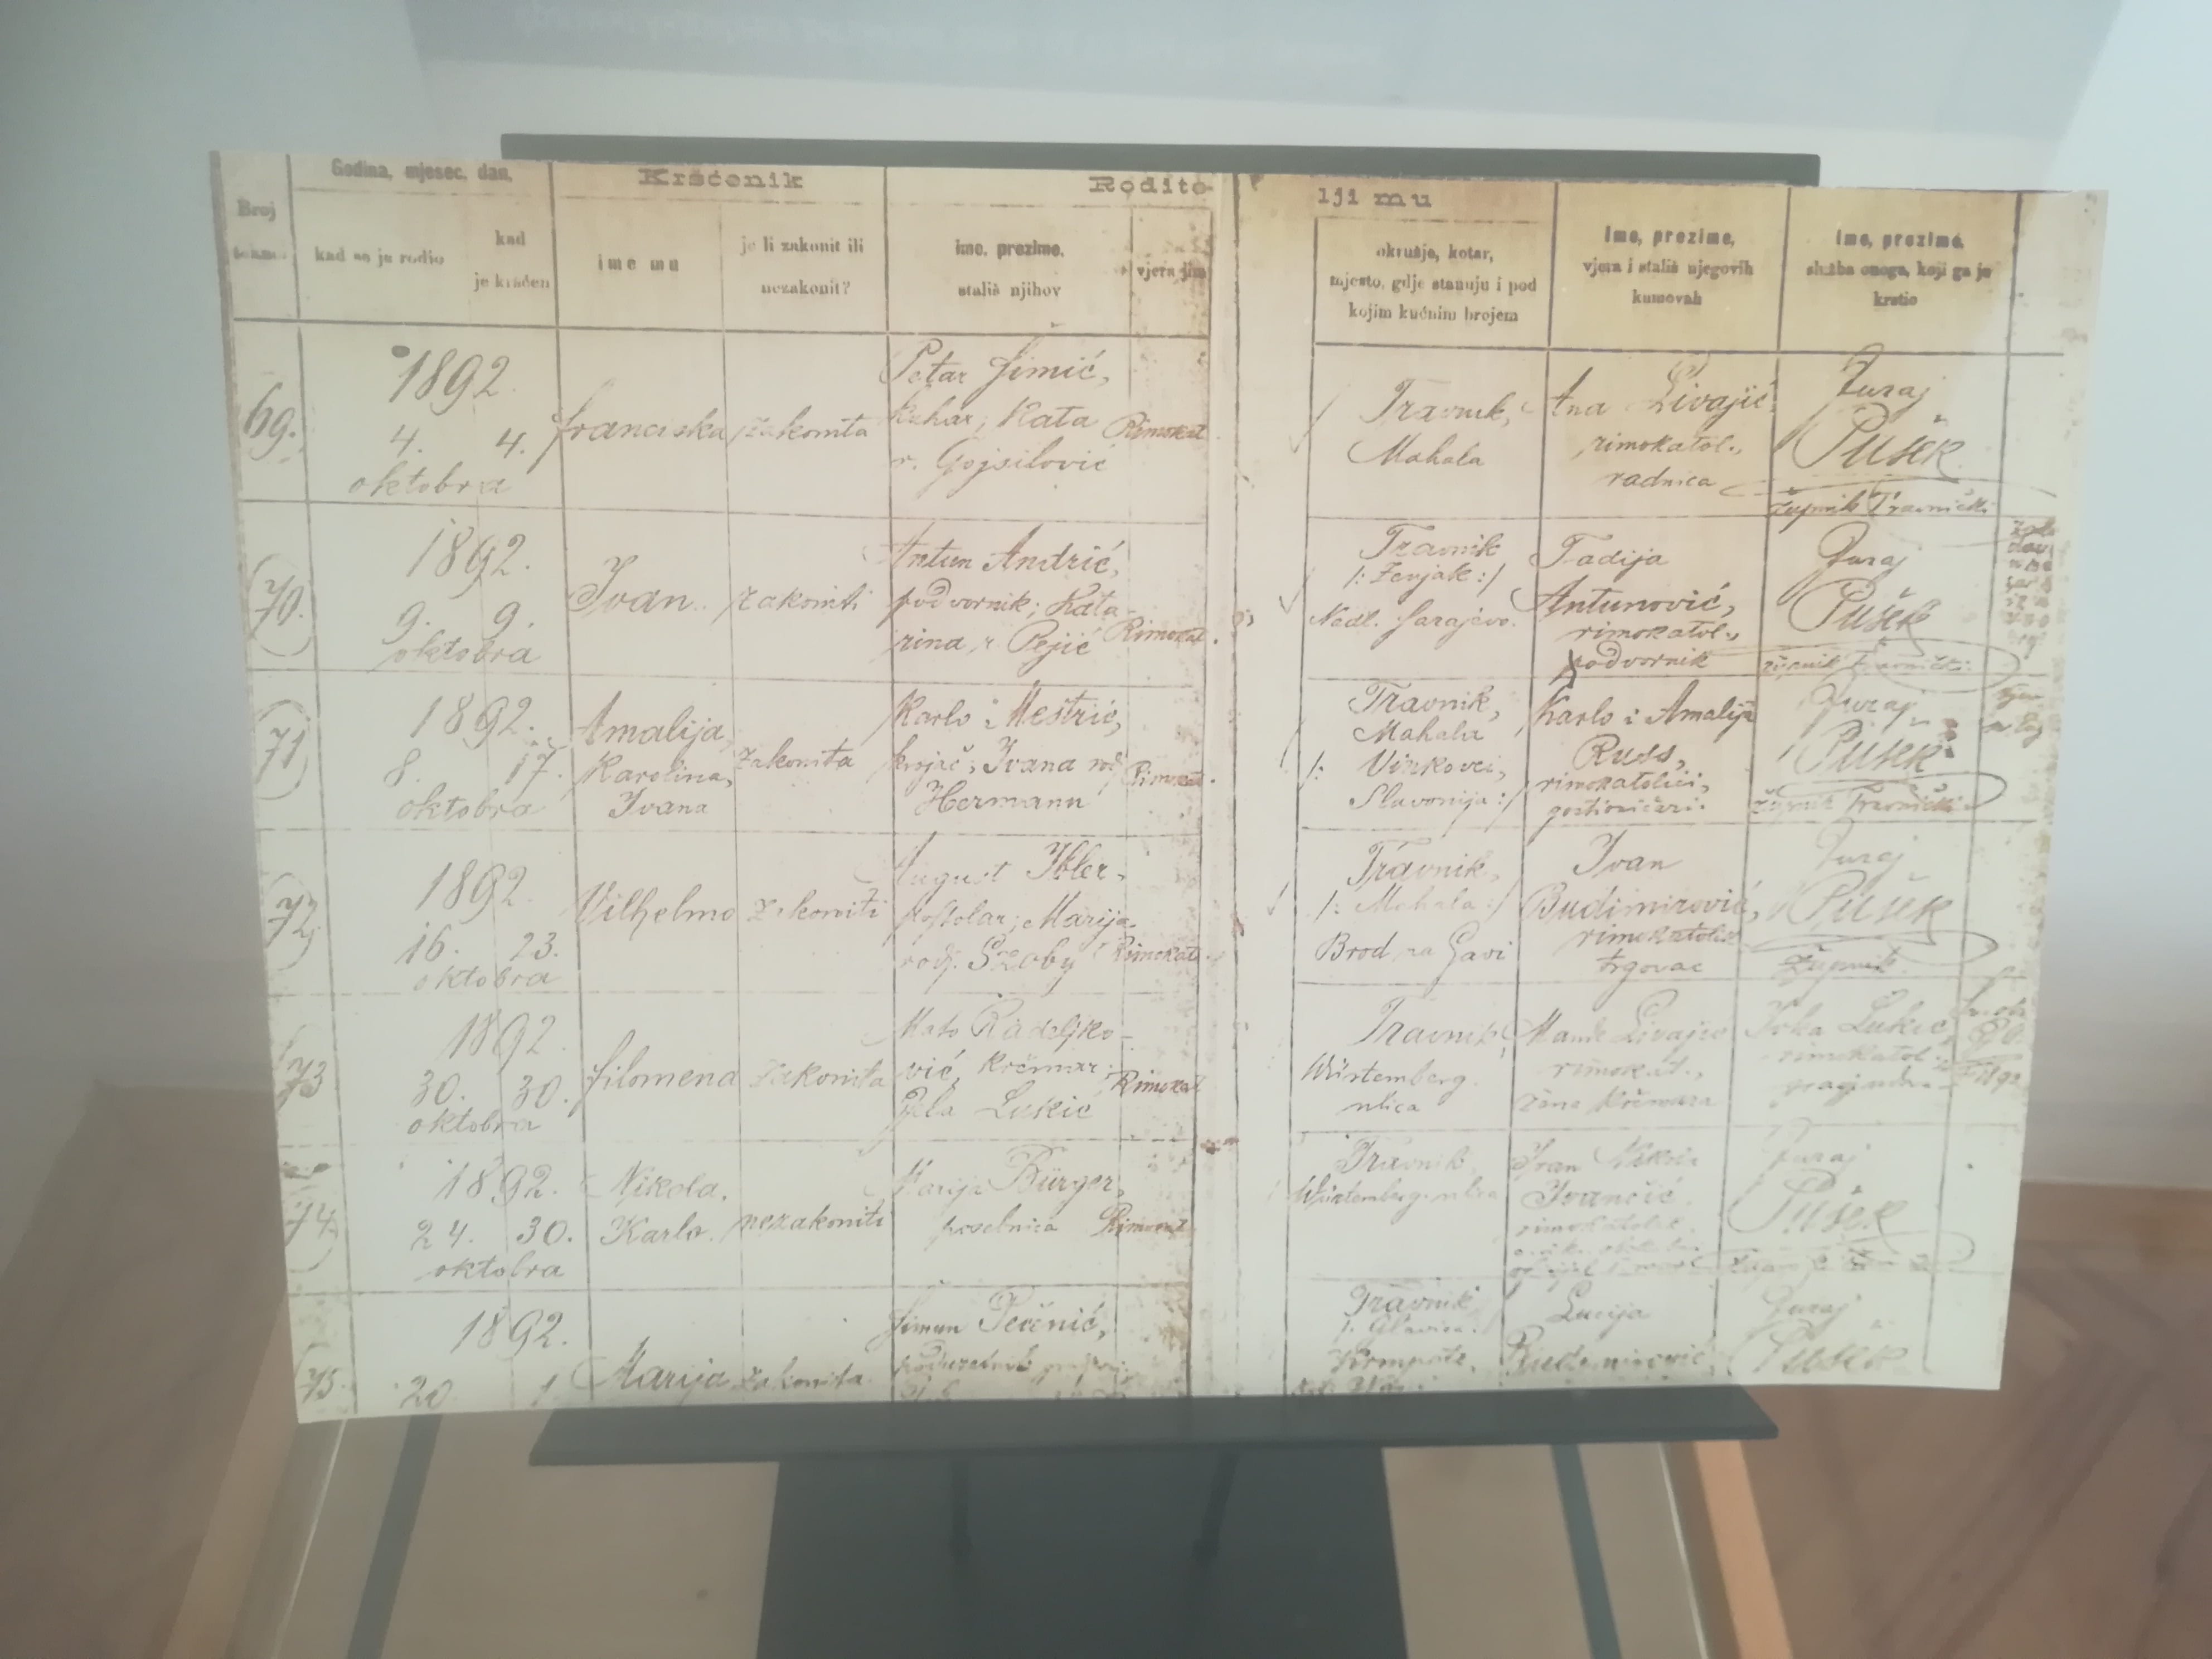 Godina, mjesec, dan,
Kršćenik
Rodite-
lji mu
Broj
kad se je rodio
kad
je kršćen
ime mu
je li zakonit ili
nezakonit?
ime, prezime,
stališ njihov
vjera jim
okružje, kotar,
mjesto, gdje stanuju i pod
kojim kućnim brojem
ime, prezime,
vjera i stališ njegovih
kumovah
ime, prezime,
služba onoga, koji ga je
krstio
69.
1892.
4. 4.
oktobra
Franciska
zakonita
Petar Simić,
Kata
r. Gojsilović
Rimokat.
Travnik,
Mahala
Ana Livajić,
rimokatol.,
radnica
Juraj
Pušek
župnik Travnički
70.
1892.
9. 9.
oktobra
Ivan
zakoniti
Antun Andrić,
podvornik; Kata-
rina r. Pejić
Rimokat.
Travnik
/: Zenjak :/
Nadl. Sarajevo.
Tadija
Antunović,
rimokatol.,
podvornik
Juraj
Pušek
župnik Travnički
71
1892.
8. 17.
oktobra
Amalija,
Karolina,
Ivana
zakonita
Karlo Meštrić,
krojač; Ivana rodj.
Hermann
Rimokat.
Travnik,
Mahala
/: Vinkovci,
Slavonija :/
Karlo i Amalija
Russ,
rimokatolici,
gostioničari.
Juraj
Pušek
župnik Travnički
72.
1892.
16. 23.
oktobra
Vilhelmo
zakoniti
August Ibler,
postolar; Marija
rodj. Szaby
Rimokat.
Travnik,
/: Mahala :/
Brod na Savi
Ivan
Budimirović,
rimokatolik
trgovac
Juraj
Pušek
župnik
73
1892.
30. 30.
oktobra
Filomena
zakonita
Mato Radeljko-
vić, krčmar;
Lukić
Rimokat.
Travnik,
Würtemberg.
ulica
Livajić
rimokat.,
žena krčmara
Lukić,
rimokatol.
1892
74.
1892.
24. 30.
oktobra
Nikola,
Karlo.
nezakoniti
Marija Bürger,
Rimokat.
Travnik
Würtemberg. ulica
Ivan
Ivančić
rimokatolik
Juraj
Pušek
75.
1892.
20 1
Marija
zakonita
Simun Pečnić,
Travnik
/: Glavica :/
Lucija
Budimirović,
Juraj
Pušek